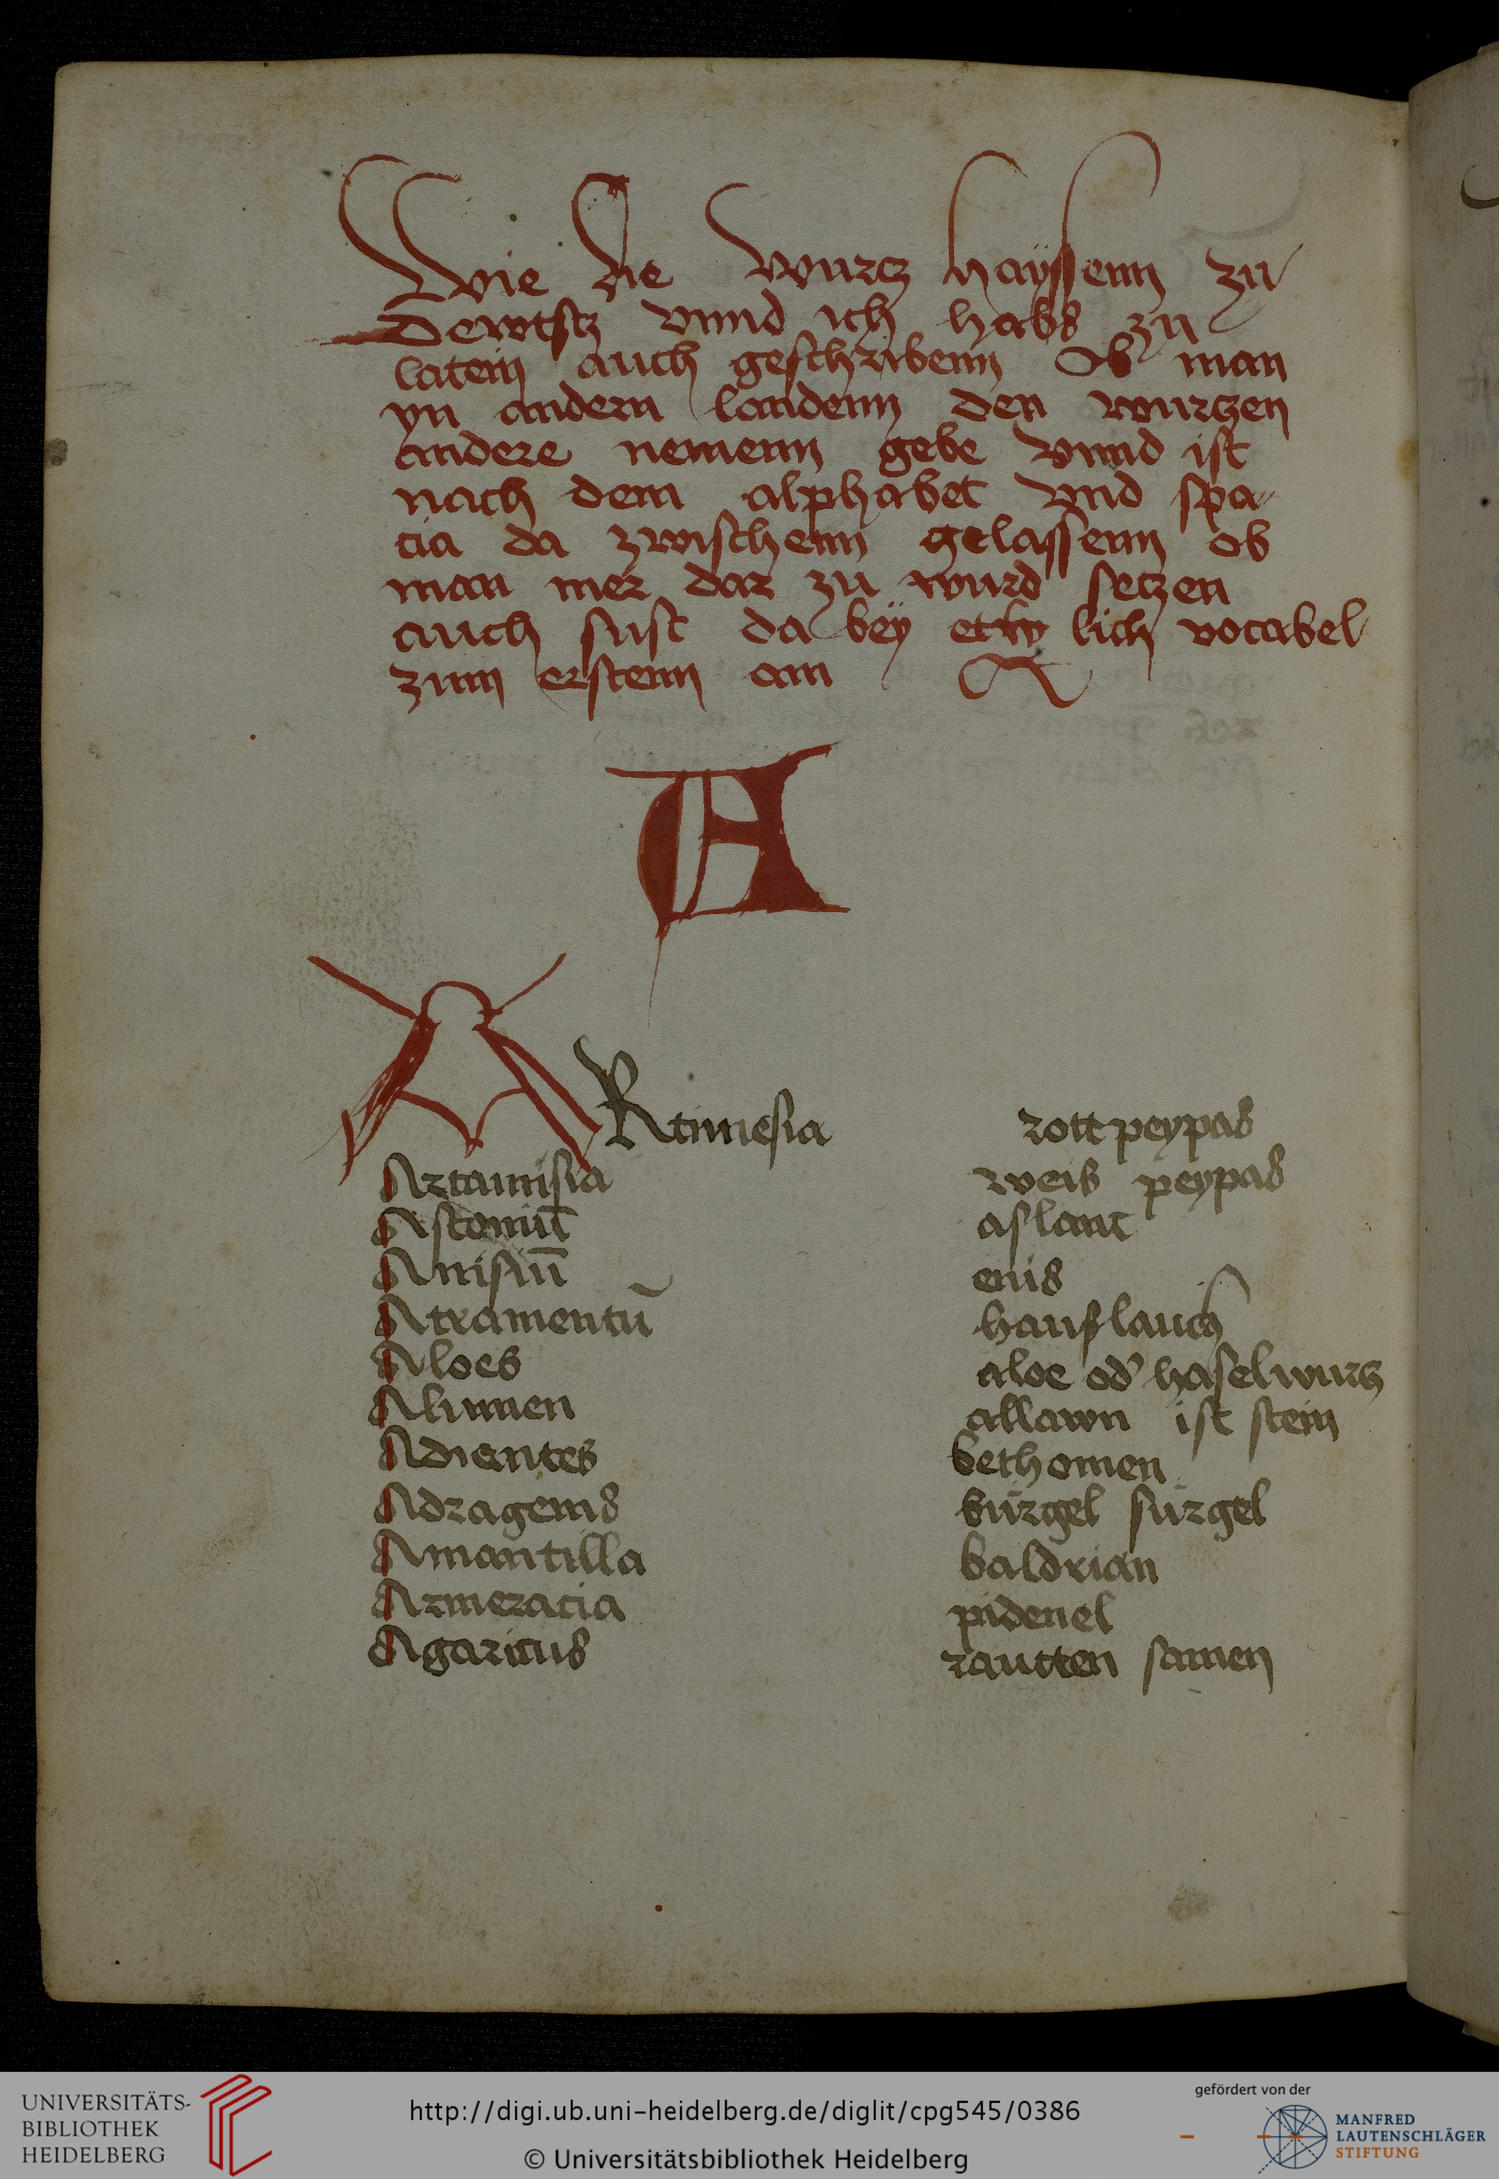 Wie die wurcz hayssenn zu
dewtscz vnnd ich habs zu
latein auch geschribenn Ob man
yn andern landenn den wurczen
andere nemenn gebe vnnd ist
nach dem alphabet vnd spa-
cia da zwischenn gelassenn ob
man mer dar zu wurd seczen
auch sust da bey etlich vocabel
zum erstenn am A
A
ARtimesia rott peypas
Artamisia weis peypas
Astoniu̅ aslant
Anisiu̅ enis
Atramentu̅ hauslauch
Aloes aloe od' haselwurtz
Alumen allawn ist stein
Adientes bethonien
Adragenis bürgel sürgel
Amantilla baldrian
Armeracia pidenel
Agaricus rautten samen
UNIVERSITÄTS-
BIBLIOTHEK
HEIDELBERG
http://digi.ub.uni-heidelberg.de/diglit/cpg545/0386
© Universitätsbibliothek Heidelberg
gefördert von der
MANFRED
LAUTENSCHLÄGER
STIFTUNG